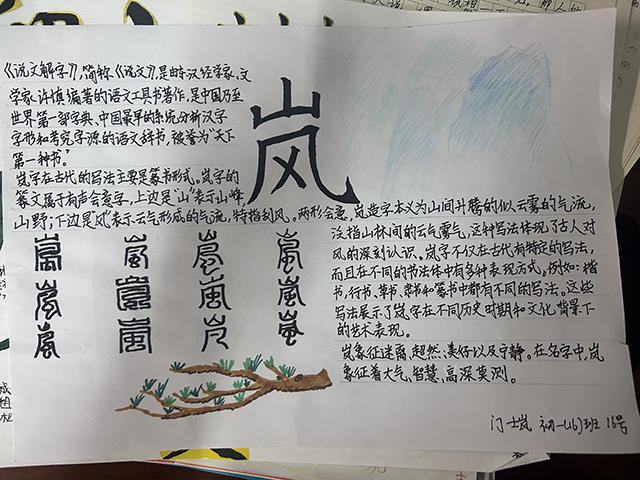 《说文解字》,简称《说文》,是由东汉经学家、文
学家许慎编著的语文工具书著作,是中国乃至
世界第一部字典、中国最早的系统分析汉字
字形和考究字源的语文辞书,被誉为"天下
第一种书"。
岚字在古代的写法主要是篆书形式。岚字的
篆文属于有声会意字,上边是"山"表示山峰,
山野;下边是"风"表示云气形成的气流,特指刮风。两形会意,岚造字本义为山间升腾的似云雾的气流,
泛指山林间的云气雾气,这种写法体现了古人对
风的深刻认识。岚字不仅在古代有特定的写法,
而且在不同的书法体中有多种表现方式。例如:楷
书,行书、草书、隶书和篆书中都有不同的写法。这些
写法展示了岚字在不同历史时期和文化背景下
的艺术表现。
岚象征迷离、超然、美好以及宁静。在名字中,岚
象征着大气、智慧、高深莫测。
岚
门士岚 初一(16)班 16号